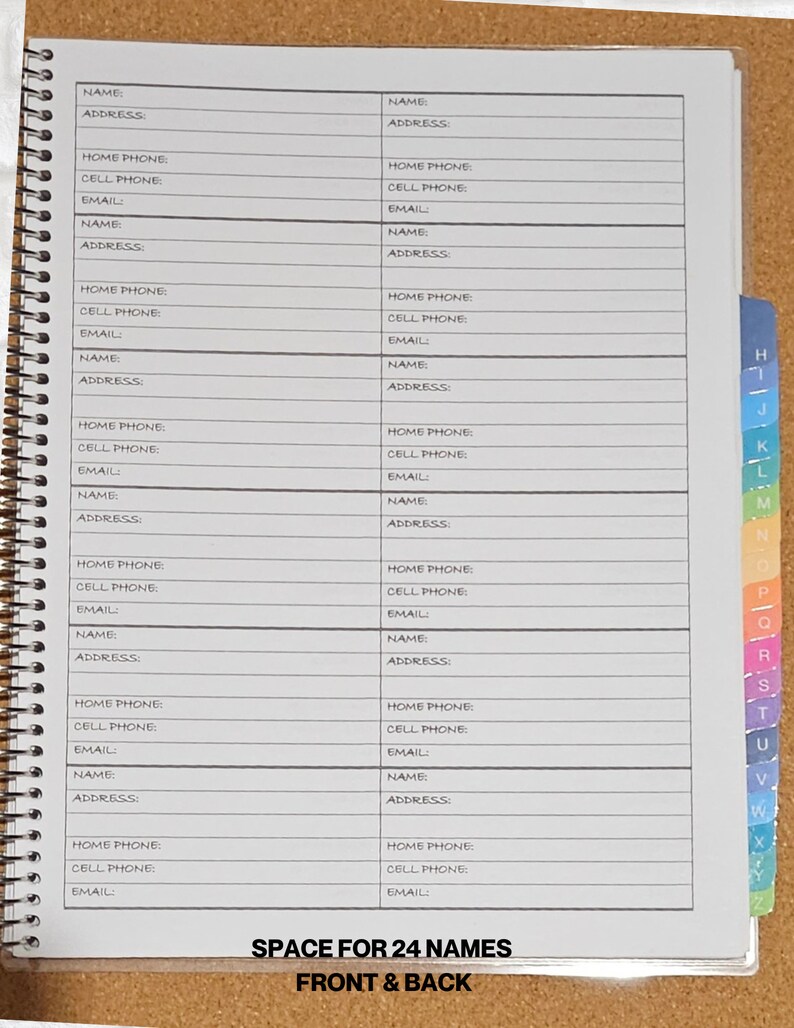 NAME:
ADDRESS:
HOME PHONE:
CELL PHONE:
EMAIL:
NAME:
ADDRESS:
HOME PHONE:
CELL PHONE:
EMAIL:
NAME:
ADDRESS:
HOME PHONE:
CELL PHONE:
EMAIL:
NAME:
ADDRESS:
HOME PHONE:
CELL PHONE:
EMAIL:
NAME:
ADDRESS:
HOME PHONE:
CELL PHONE:
EMAIL:
NAME:
ADDRESS:
HOME PHONE:
CELL PHONE:
EMAIL:
NAME:
ADDRESS:
HOME PHONE:
CELL PHONE:
EMAIL:
NAME:
ADDRESS:
HOME PHONE:
CELL PHONE:
EMAIL:
NAME:
ADDRESS:
HOME PHONE:
CELL PHONE:
EMAIL:
NAME:
ADDRESS:
HOME PHONE:
CELL PHONE:
EMAIL:
NAME:
ADDRESS:
HOME PHONE:
CELL PHONE:
EMAIL:
NAME:
ADDRESS:
HOME PHONE:
CELL PHONE:
EMAIL:
H
I
J
K
L
M
N
O
P
Q
R
S
T
U
V
W
X
Y
Z
SPACE FOR 24 NAMES
FRONT & BACK